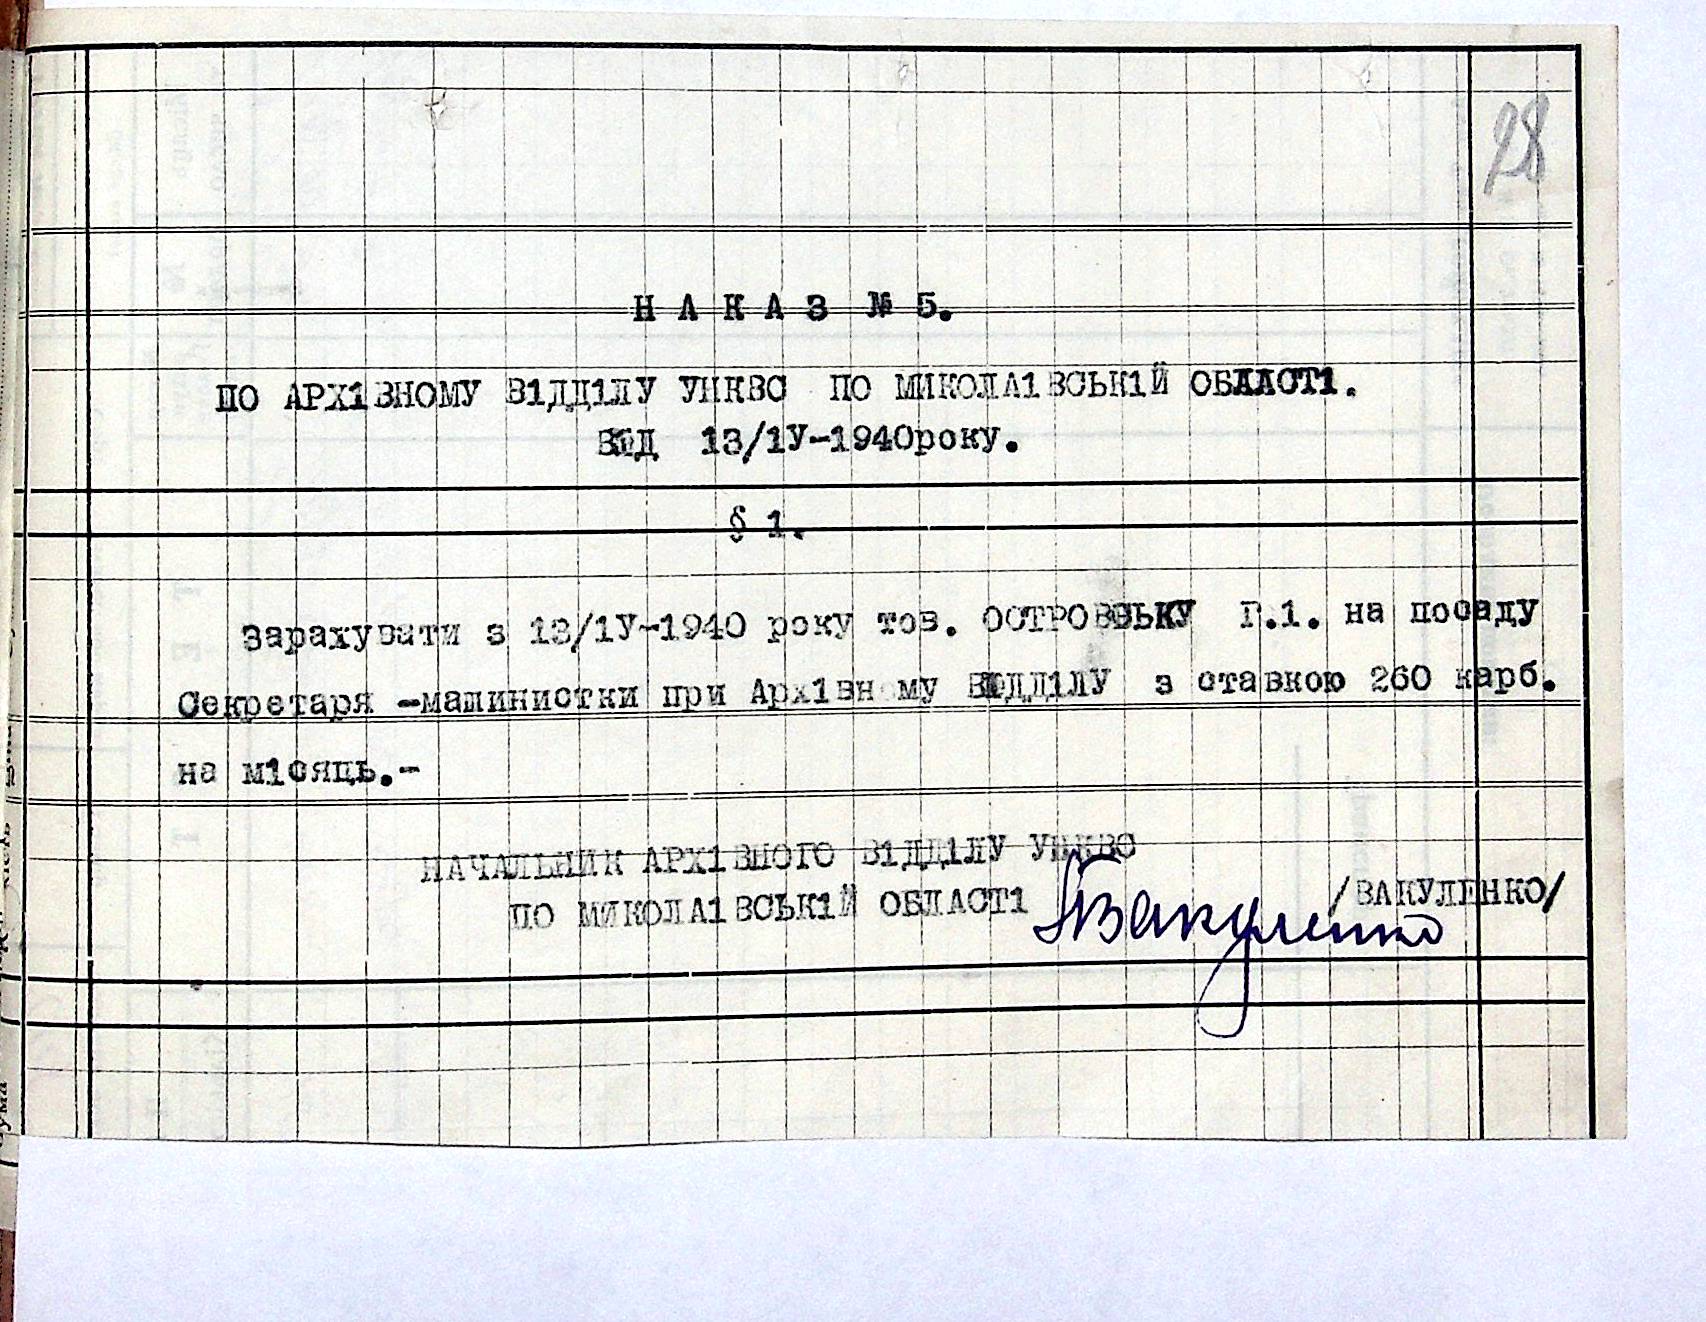 28
Н А К А З № 5.
ПО АРХ1ВНОМУ В1ДД1ЛУ УНКВС ПО МИКОЛА1ВСЬК1Й ОБЛАСТ1.
В1Д 13/1У-1940року.
§ 1.
Зарахувати з 13/1У-1940 року тов. ОСТРОВСЬКУ Г.1. на посаду
Секретаря -машинистки при Арх1вному В1ДД1ЛУ з ставкою 260 карб.
на м1сяць.-
НАЧАЛЬНИК АРХ1ВНОГО В1ДД1ЛУ УНКВС
ПО МИКОЛА1ВСЬК1Й ОБЛАСТ1 Вакуленко /ВАКУЛЕНКО/